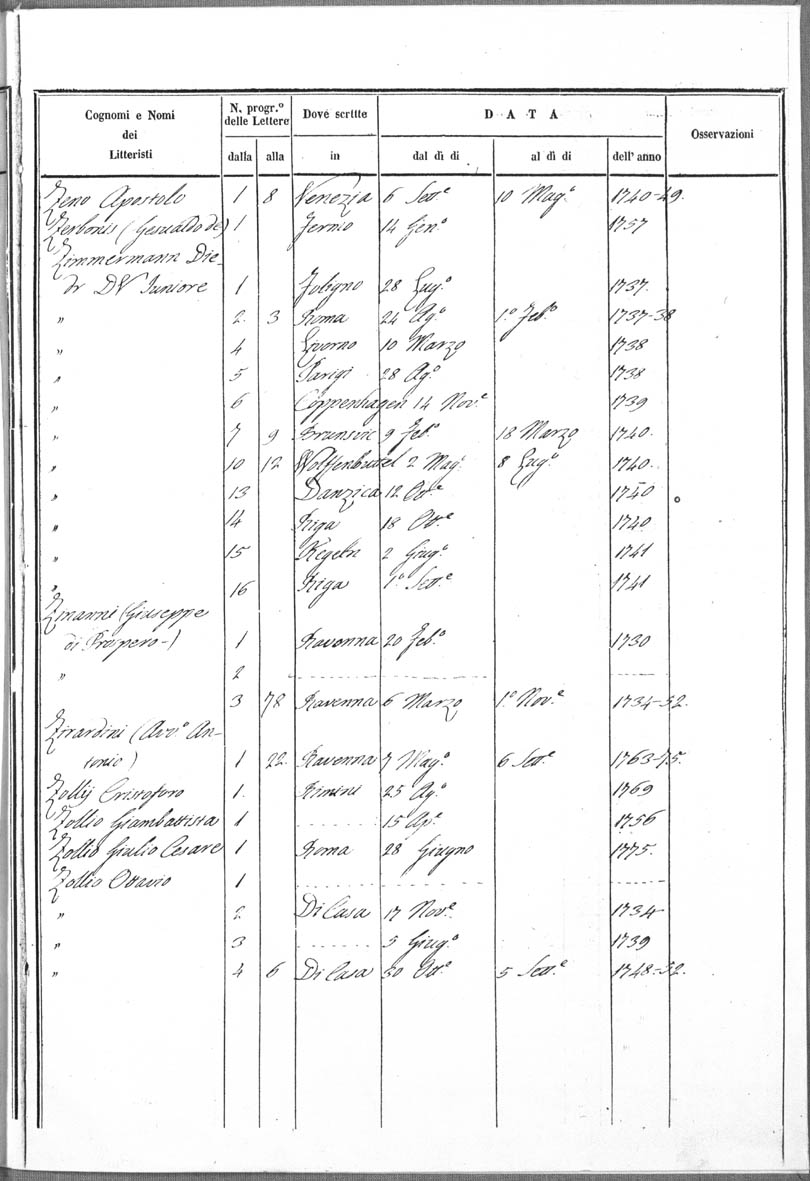 Cognomi e Nomi dei Litteristi
N. progr.º delle Lettere
dalla alla
Dove scritte in
DATA
dal dì di al dì di dell' anno
Osservazioni
Zeno Apostolo 1 8 Venezia 6 Set.e 10 Mag.o 1740-49.
Zerbonis (Gesualdo de) 1 14 Gen.o 1757
Zimmermann Die-
dr DV Juniore 1 Foligno 28 Lug.o 1737.
" 2. 3 Roma 24 Ag.o 1.o Feb.o 1737-38
" 4 Livorno 10 Marzo 1738
" 5 Parigi 28 Ag.o 1738
" 6 Coppenhagen 14 Nov.e 1739
" 7 9 Brunsvic 9 Feb.o 18 Marzo 1740.
" 10 12 Wolfenbuttel 2 Mag. 8 Lug.o 1740.
" 13 Danzica 12 Ott.e 1740
" 14 Riga 18 Ott.e 1740
" 15 2 Giug.o 1741
" 16 Riga 1.o Set.e 1741
Zinanni (Giuseppe
di Prospero-) 1 Ravenna 20 Feb.o 1730
" 2
3 78 Ravenna 6 Marzo 1.o Nov.e 1734-52.
Zirardini (Avv.o An-
tonio) 1 22. Ravenna 7 Mag.o 6 Set.e 1763-75.
Zollij Cristoforo 1. Rimini 25 Ag.o 1769
Zollio Giambattista 1 15 Ap.e 1756
Zollio Giulio Cesare 1 Roma 28 Giugno 1775.
Zollio Ottavio 1
" 2 Di Casa 17 Nov.e 1734
" 3 5 Giug.o 1739
" 4 6 Di Casa 30 Ott.e 5 Set.e 1748-52.